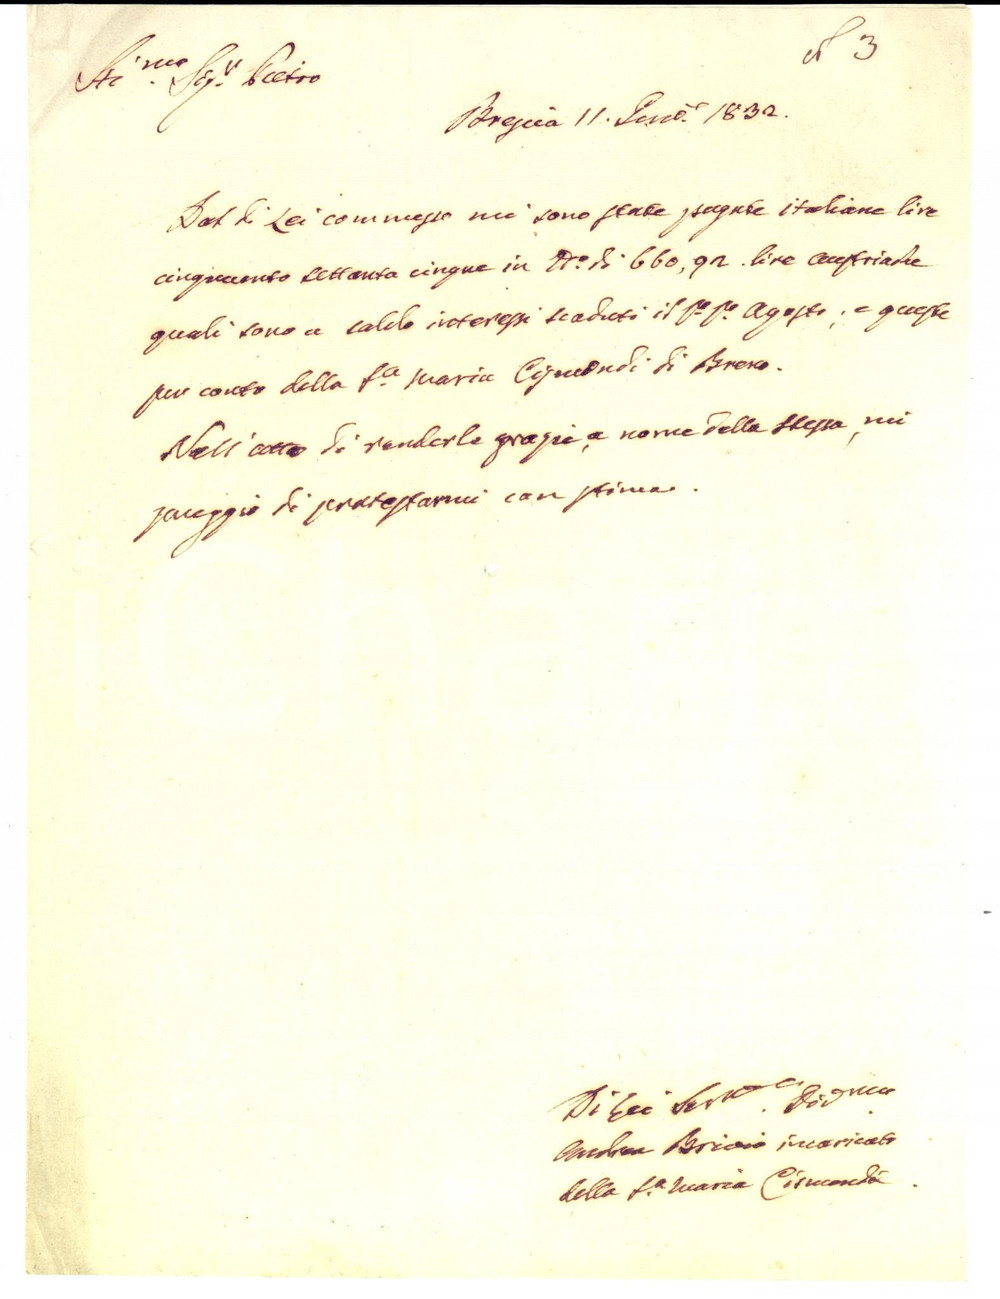 N 3
Sti.mo Sig.r Pietro
Brescia 11. Gen.o 1832.
Dal di Lei commesso mi sono state pagate italiane lire
cinquecento settanta cinque in N.o di 660,92 lire austriache
quali sono a saldo interessi scaduti il p.o p.o Agosto; e queste
per conto della S.a Maria Cismondi di Breno.
Nell'atto di renderle grazie, a nome della stessa, mi
preggio di protestarmi con stima.
Di Lei
Andrea incaricato
della S.a Maria Cismondi.
iCharta